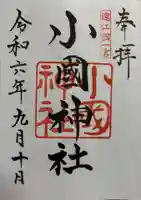 奉拝
遠江国一宮
小國神社
小國神社
令和六年九月十日